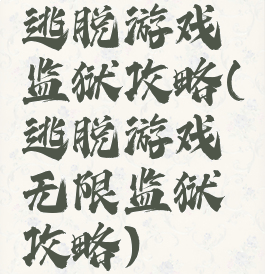 逃脱游戏
监狱攻略(
逃脱游戏
无限监狱
攻略)